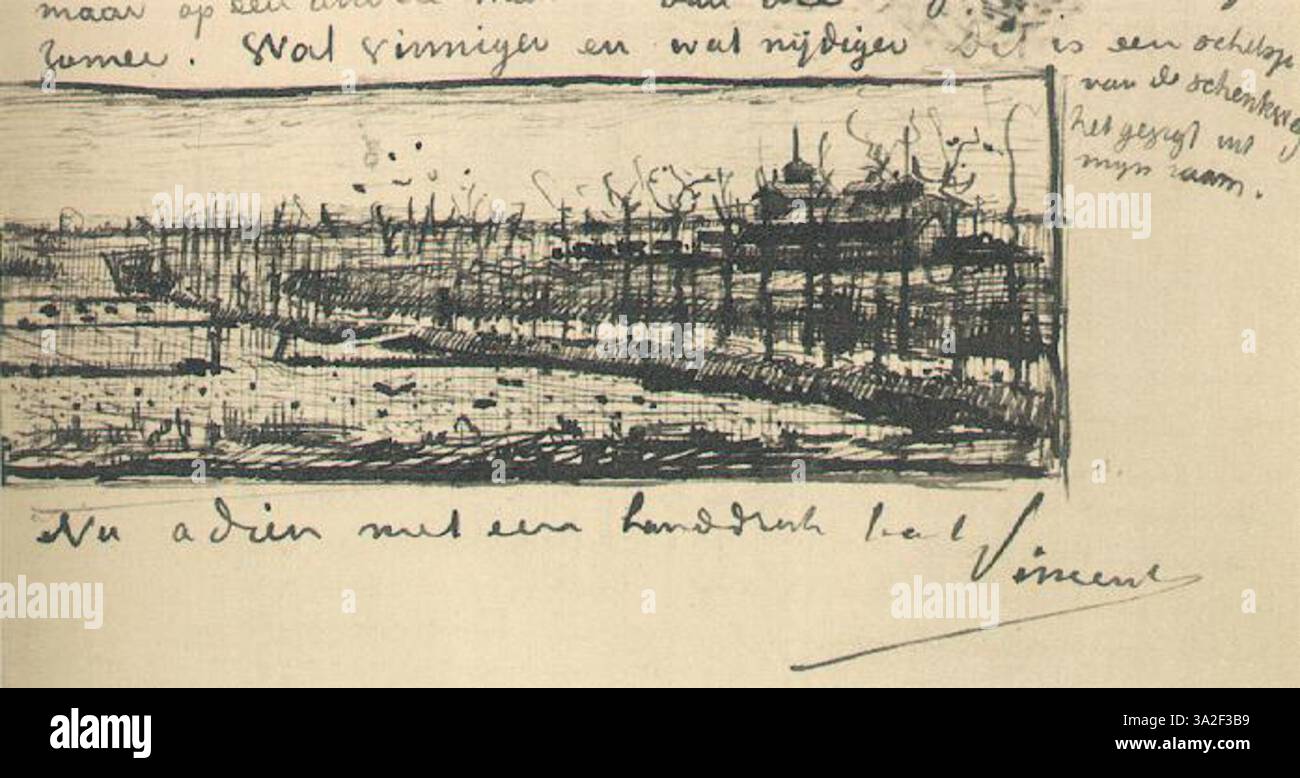 maar op een
zomer. Wat vinniger en wat nijdiger Dit is een schetsje
van de Schenkweg
het gezigt uit
mijn raam.
Nu adieu met een handdruk
Vincent
alamy
a
Image ID: 3A2F3B9
www.alamy.com